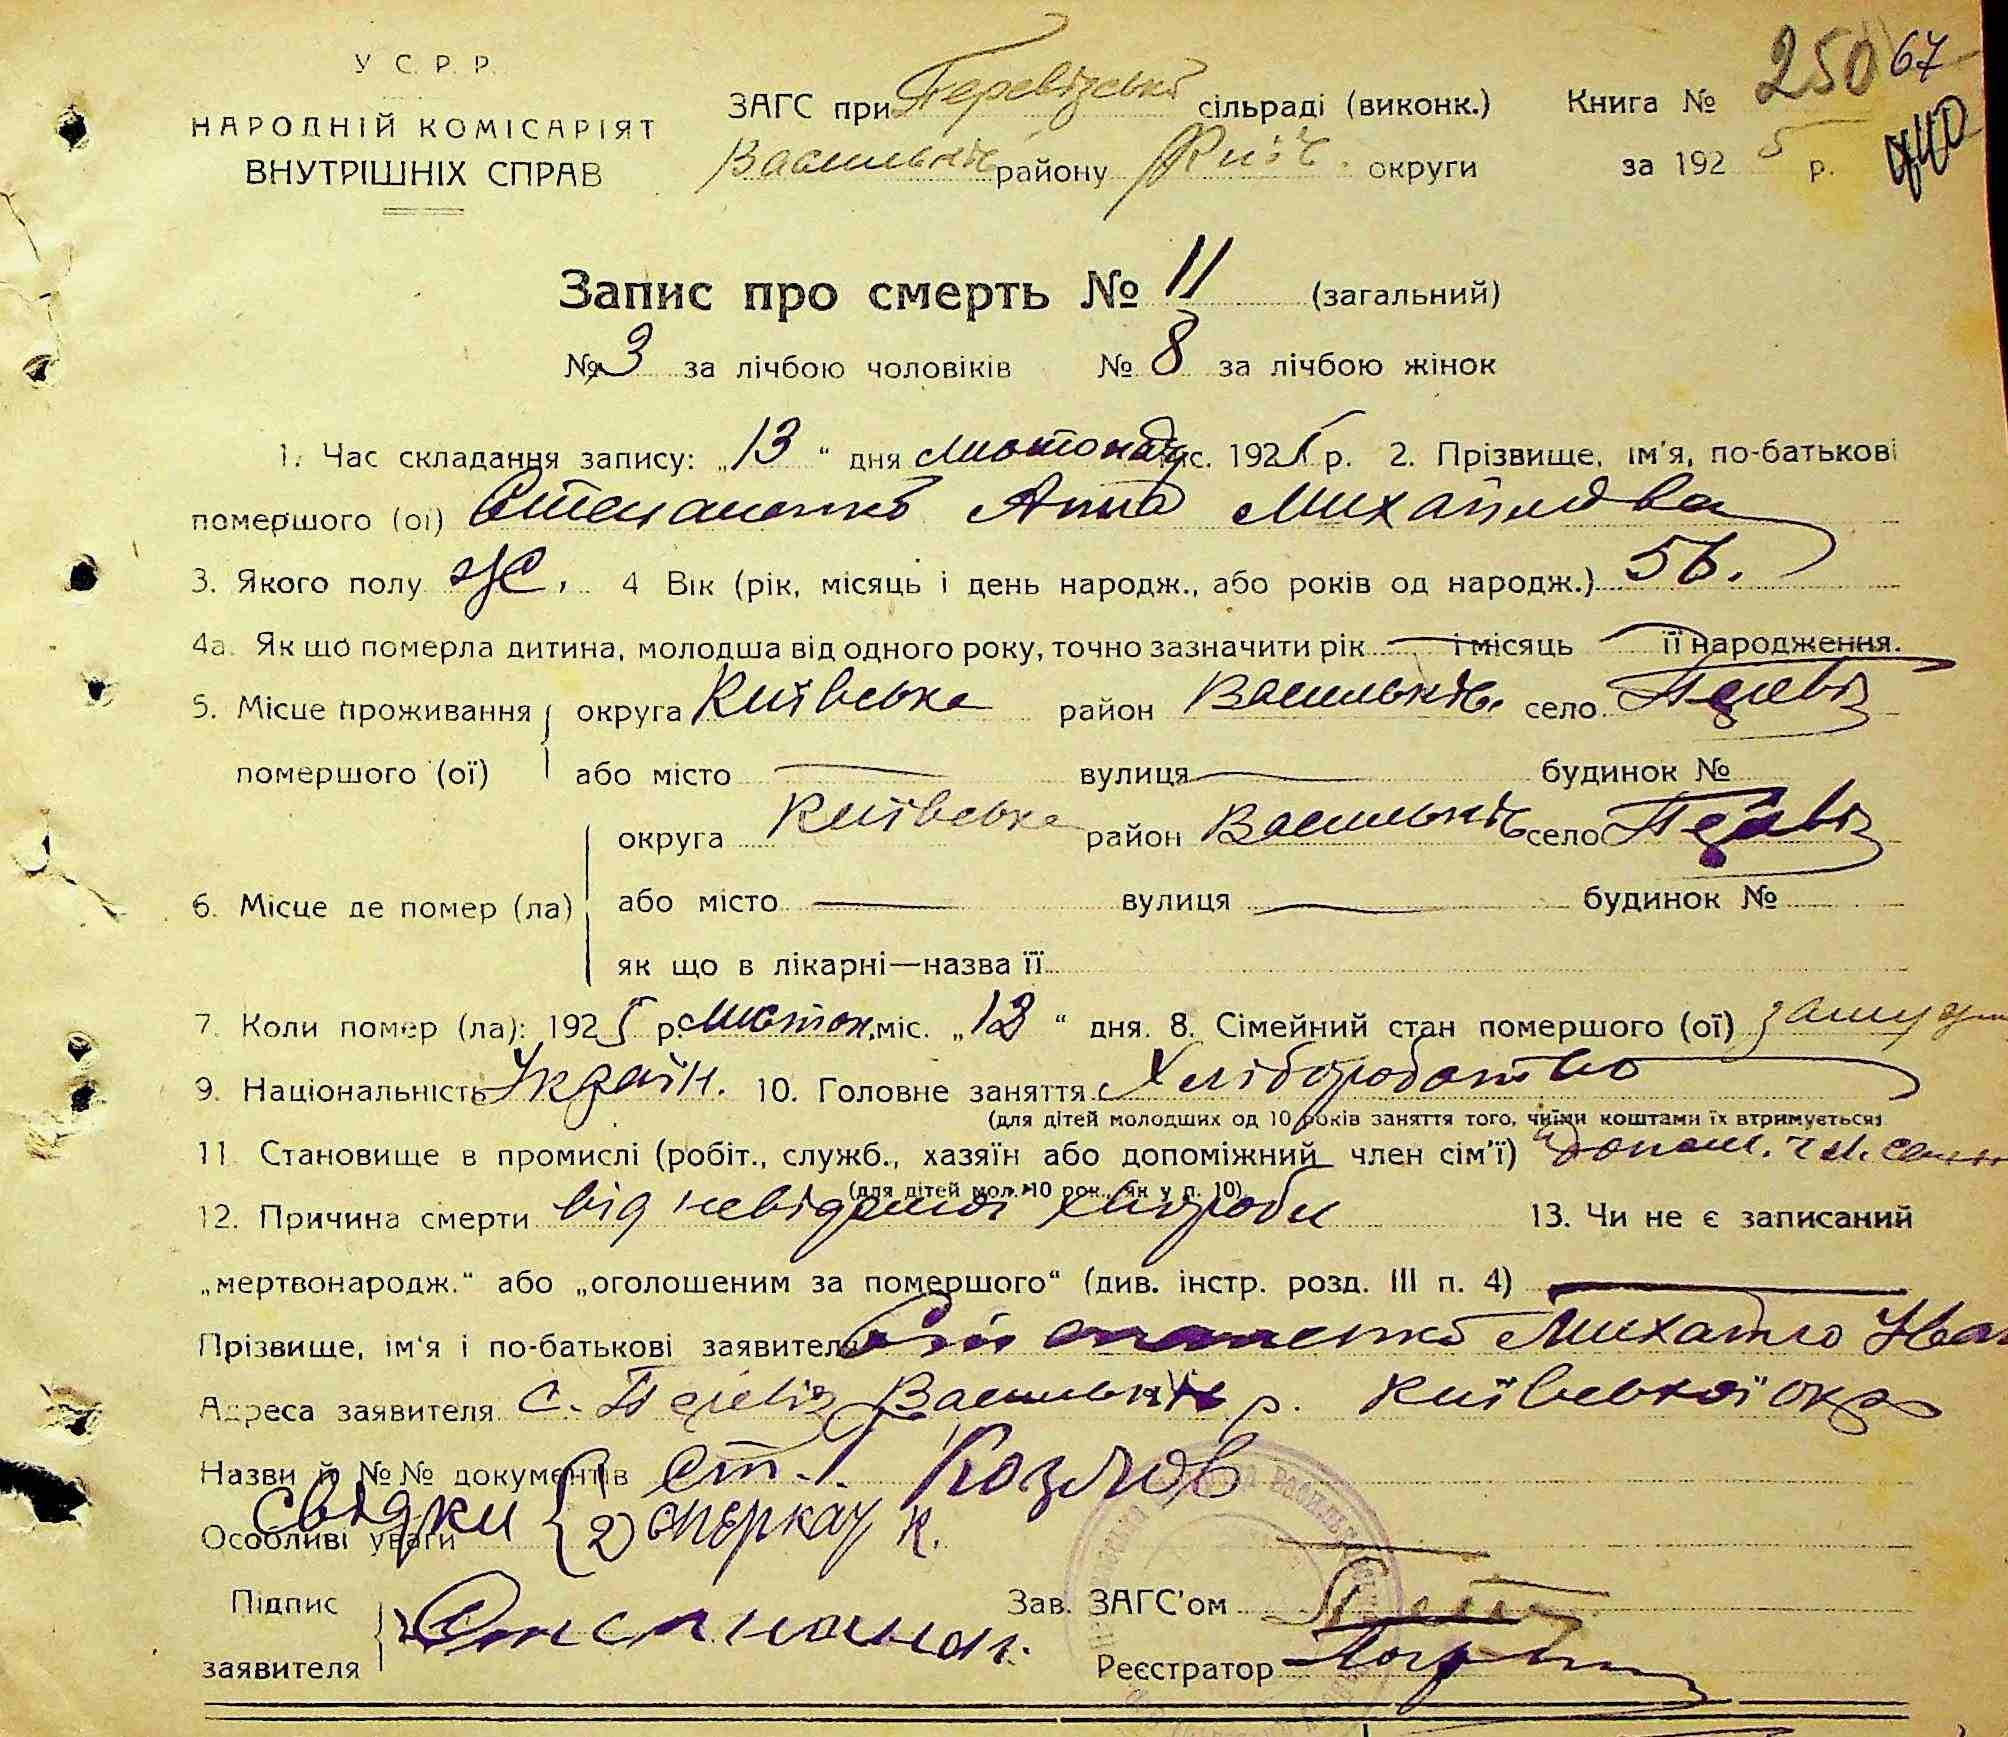 У С. Р. Р.
НАРОДНІЙ КОМІСАРІЯТ
ВНУТРІШНІХ СПРАВ
ЗАГС при Перевізській сільраді (виконк.) Книга № 250 67
Васильків району Київ. округи за 1925 р.
Запис про смерть № 11 (загальний)
№ 3 за лічбою чоловіків № 8 за лічбою жінок
1. Час складання запису: „13“ дня листопад міс. 1925 р. 2. Прізвище, ім'я, по-батькові
помершого (ої) Степаненко Анна Михайлова
3. Якого полу ж. 4 Вік (рік, місяць і день народж., або років од народж.) 56.
4а. Як що померла дитина, молодша від одного року, точно зазначити рік — і місяць — її народження.
5. Місце проживання округа Київська район Васильків. село Перевіз
помершого (ої) або місто — вулиця — будинок №
округа Київська район Васильків село Перевіз
6. Місце де помер (ла) або місто — вулиця — будинок №
як що в лікарні—назва її
7. Коли помер (ла): 1925 р. листоп. міс. „13“ дня. 8. Сімейний стан помершого (ої) замужн
9. Національність Україн. 10. Головне заняття Хліборобство
(для дітей молодших од 10 років заняття того, чиїми коштами їх втримується)
11. Становище в промислі (робіт., служб., хазяїн або допоміжний член сім'ї) Допом. чл. сем
(для дітей мол. 10 рок., як у п. 10)
12. Причина смерти від невідомої хвороби 13. Чи не є записаний
„мертвонародж.“ або „оголошеним за помершого“ (див. інстр. розд. III п. 4) —
Прізвище, ім'я і по-батькові заявителя Степаненко Михайло Іван
Адреса заявителя с. Перевіз Васильків р. Київської окр
Назви й №№ документів Ст. 1. Козлов
Свідки 2)
Особливі уваги —
Підпис Зав. ЗАГС'ом
заявителя Реєстратор